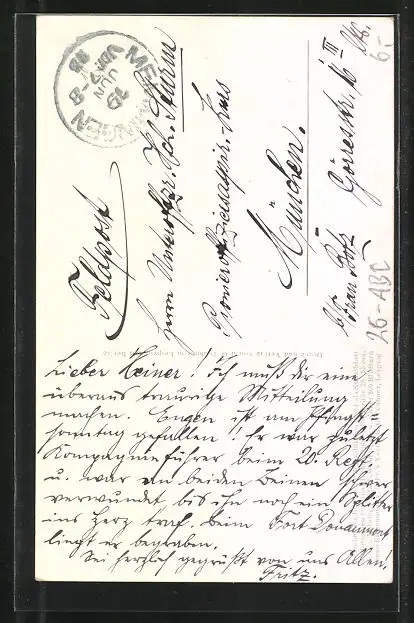 Feldpost
Herrn Unteroffz. Hch. Sturm
Pionieroffiziersaspir.-Kurs
München.
b/ Frau Götz Görresstr. III
6.-
26-ABC
MEMMINGEN
19 JUN
VORM 7-8
Lieber Heiner! Ich muß dir eine
überaus traurige Mitteilung
machen. Eugen ist am Pfingst=
sonntag gefallen! Er war zuletzt
Kompagnieführer beim 20. Regt.
u. war an beiden Beinen schwer
verwundet bis ihn noch ein Splitter
ins Herz traf. Beim Fort Douaumont
liegt er begraben.
Sei herzlich gegrüßt von uns Allen!
Fritz.